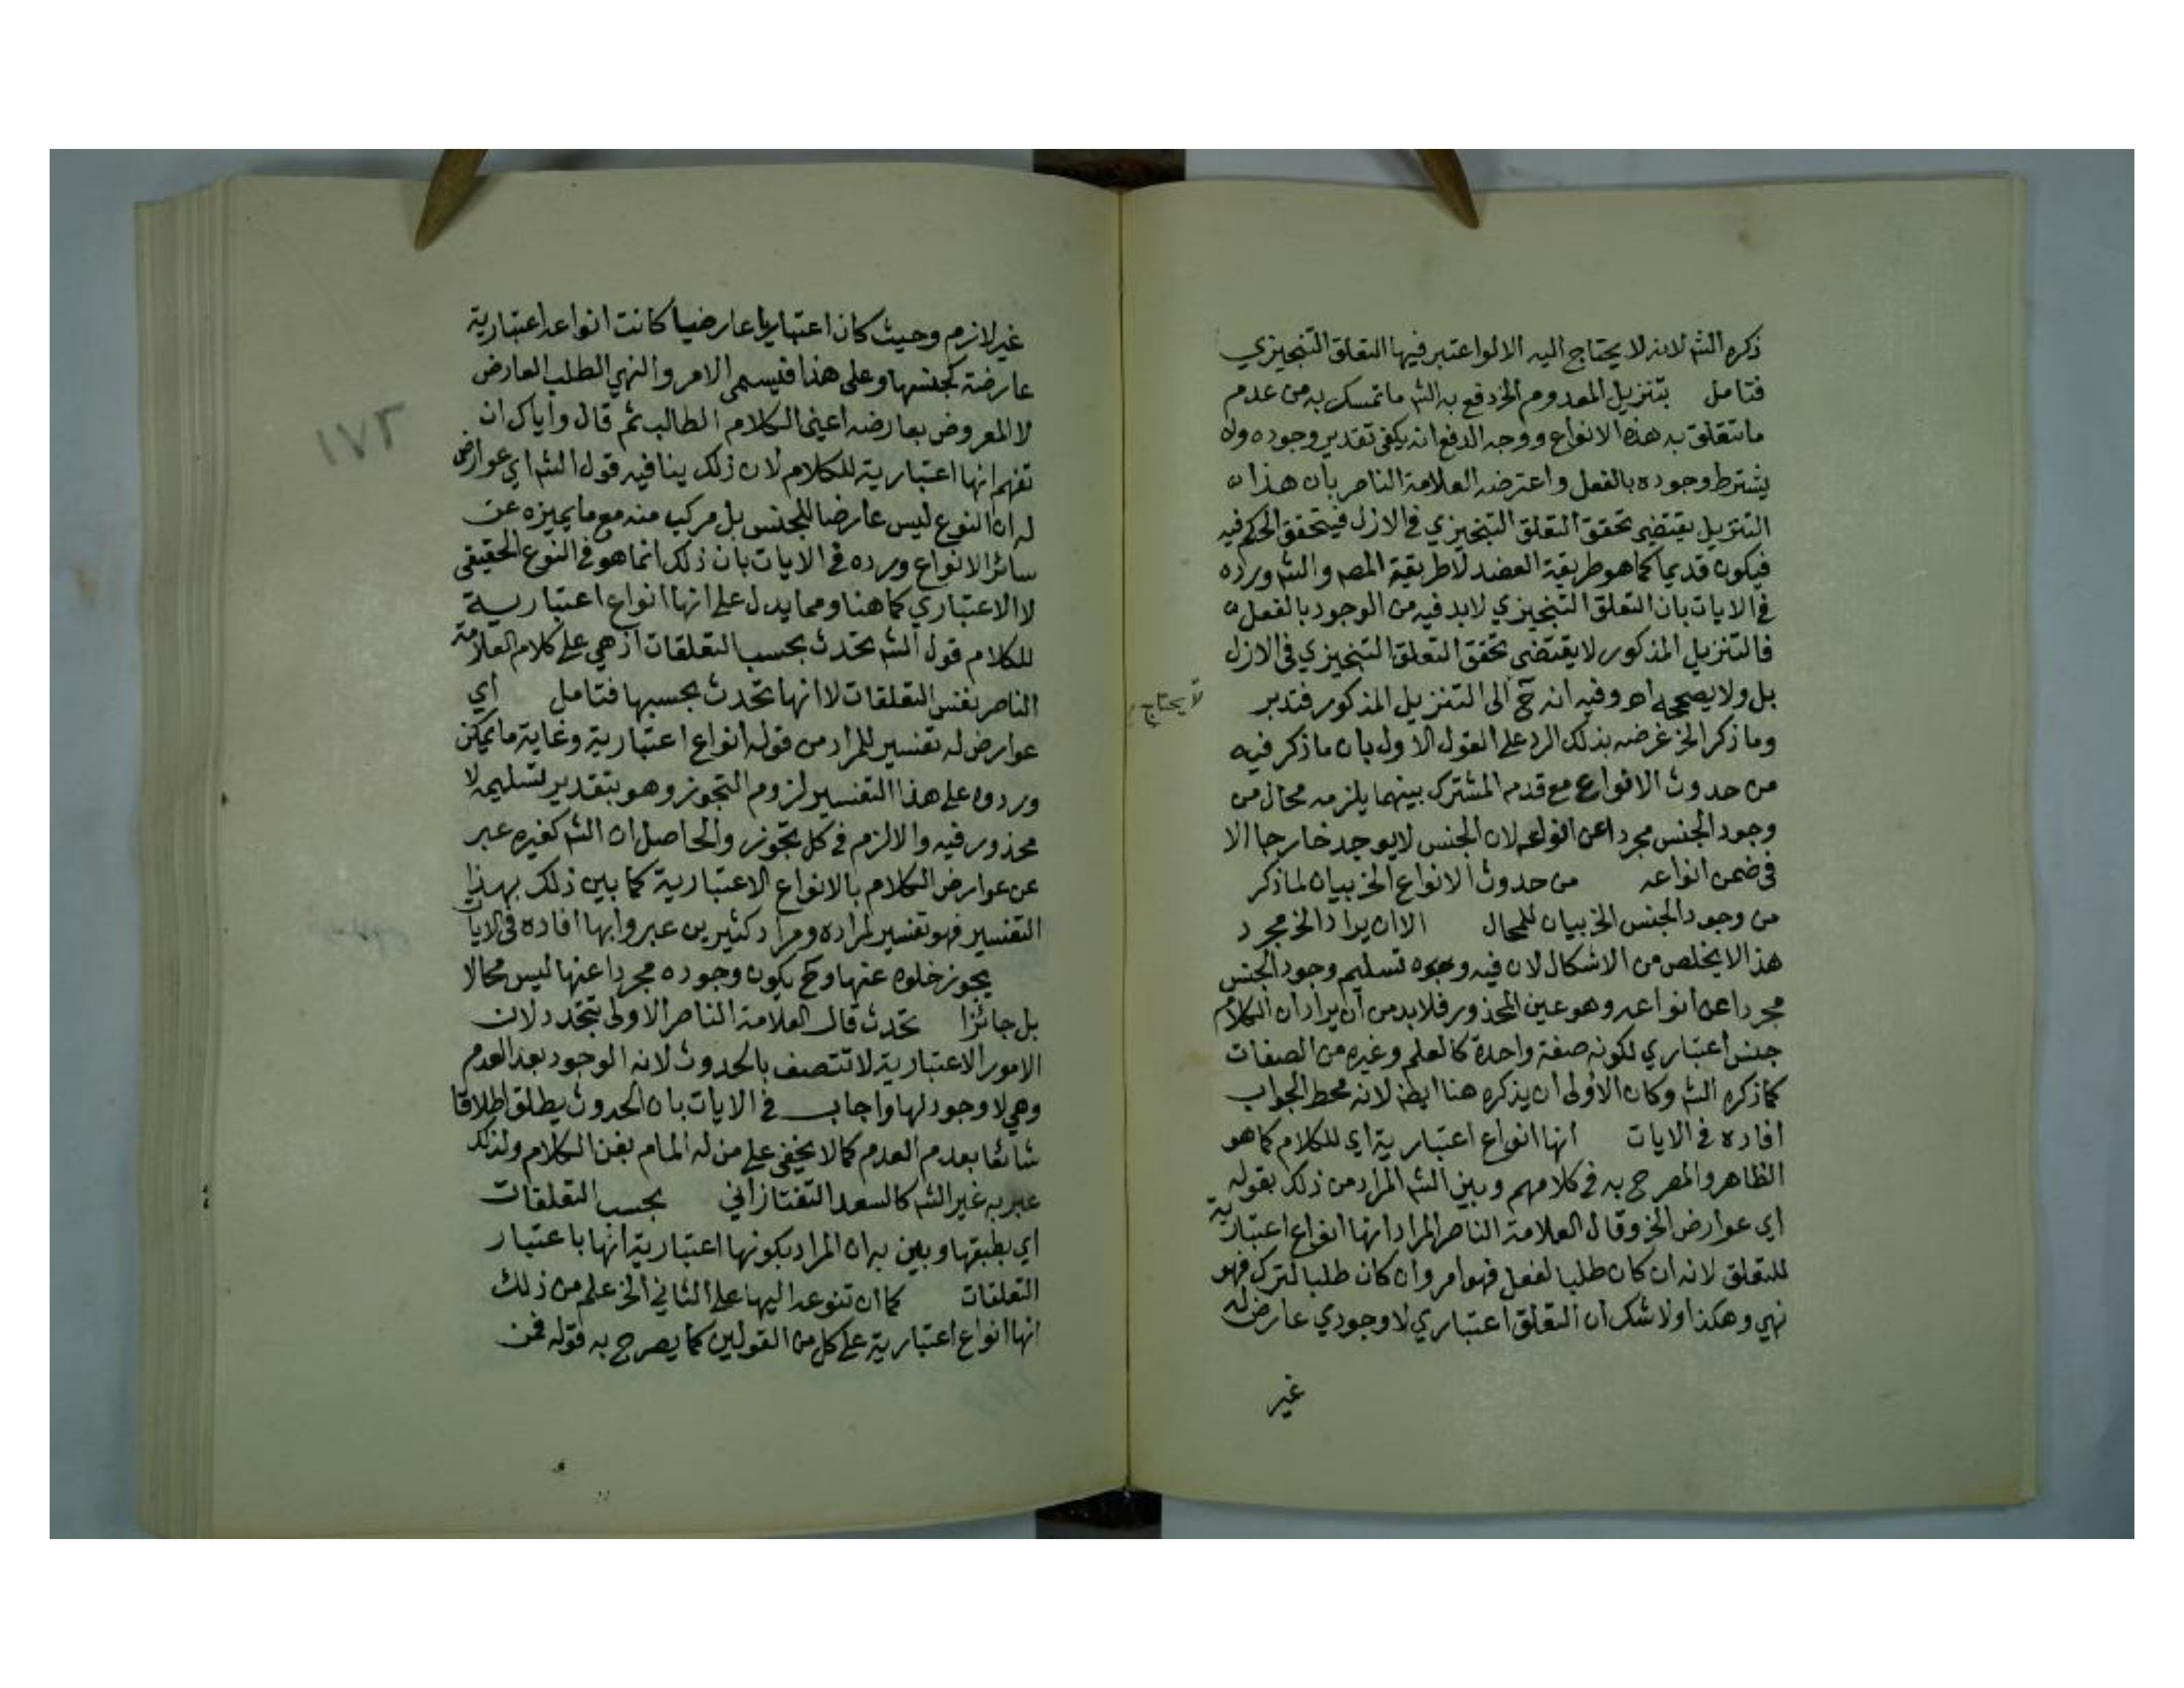 ذكره الشم لانه لا يحتاج اليه الا لو اعتبر فيها التعلق التنجيزي
فتامل بتنزيل المعدوم الخ دفع به الشم ما تمسك به من عدم
ما تتعلق به هذه الانواع ووجه الدفع انه يكفي تقدير وجوده ولا
يشترط وجوده بالفعل واعترضه العلامة الناصر بان هذا
التنزيل يقتضي تحقق التعلق التنجيزي في الازل فيتحقق الحكم فيه
فيكون قديما كما هو طريقة العضد لا طريقة المصم والشم ورده
في الايات بان التعلق التنجيزي لا بد فيه من الوجود بالفعل
فالتنزيل المذكور لا يقتضي تحقق التعلق التنجيزي في الازل
بل ولا يصححه اهـ وفيه انه ح الى التنزيل المذكور فتدبر
لا يحتاج
وما ذكر الخ غرضه بذلك الرد على القول الاول بان ما ذكر فيه
من حدوث الانواع مع قدم المشترك بينهما يلزمه محال من
وجود الجنس مجردا عن انواعه لان الجنس لا يوجد خارجا الا
في ضمن انواعه من حدوث الانواع الخ بيان لما ذكر
من وجود الجنس الخ بيان للمحال الا ان يراد الخ مجرد
هذا لا يخلص من الاشكال لان فيه تسليم وجود الجنس
مجردا عن انواعه وهو عين المحذور فلا بد من ان يراد ان الكلام
جنس اعتباري لكونه صفة واحدة كالعلم وغيره من الصفات
كما ذكره الشم وكان الاولى ان يذكره هنا ايضا لانه محط الجواب
افاده في الايات انها انواع اعتبارية اي للكلام كما هو
الظاهر والمصرح به في كلامهم وبين الشم المراد من ذلك بقوله
اي عوارض الخ وقال العلامة الناصر المراد انها انواع اعتبارية
للتعلق لانه ان كان طلبا لفعل فهو امر وان كان طلبا لترك فهو
نهي وهكذا ولا شك ان التعلق اعتباري لا وجودي عارض له
غير
١٧٣
غير لازم وحيث كان اعتباريا عارضيا كانت انواعه اعتبارية
عارضة كجنسها وعلى هذا فيسمى الامر والنهي الطلب العارض
لا المعروض بعارضه اعني الكلام الطالب ثم قال واياك ان
تفهم انها اعتبارية للكلام لان ذلك ينافيه قول الشم اي عوارض
له ان النوع ليس عارضا للجنس بل مركب منه مع ما يميزه عن
سائر الانواع ورده في الايات بان ذلك انما هو في النوع الحقيقي
لا الاعتباري كما هنا ومما يدل على انها انواع اعتبارية
للكلام قول الشم تحدث بحسب التعلقات اذ هي على كلام العلامة
الناصر نفس التعلقات لا انها تحدث بحسبها فتامل اي
عوارض له تفسير للمراد من قوله انواع اعتبارية وغاية ما يمكن
وروده على هذا التفسير لزوم التجوز وهو بتقدير تسليمه لا
محذور فيه والا لزم في كل تجوز والحاصل ان الشم كغيره عبر
عن عوارض الكلام بالانواع الاعتبارية كما بين ذلك بهذا
التفسير فهو تفسير لمراده ومراد كثيرين عبروا بها افاده في الايات
يجوز خلوه عنها وح يكون وجوده مجردا عنها ليس محالا
بل جائزا تحدث قال العلامة الناصر الاولى تتجدد لان
الامور الاعتبارية لا تتصف بالحدوث لانه الوجود بعد العدم
وهي لا وجود لها واجاب في الايات بان الحدوث يطلق اطلاقا
شائعا بعدم العدم كما لا يخفى على من له المام بفن الكلام ولذلك
عبر به غير الشم كالسعد التفتازاني بحسب التعلقات
اي بطبقها وبين به ان المراد بكونها اعتبارية انها باعتبار
التعلقات كما ان تنوعه اليها على الثاني الخ علم من ذلك
انها انواع اعتبارية على كل من القولين كما يصرح به قوله فمن